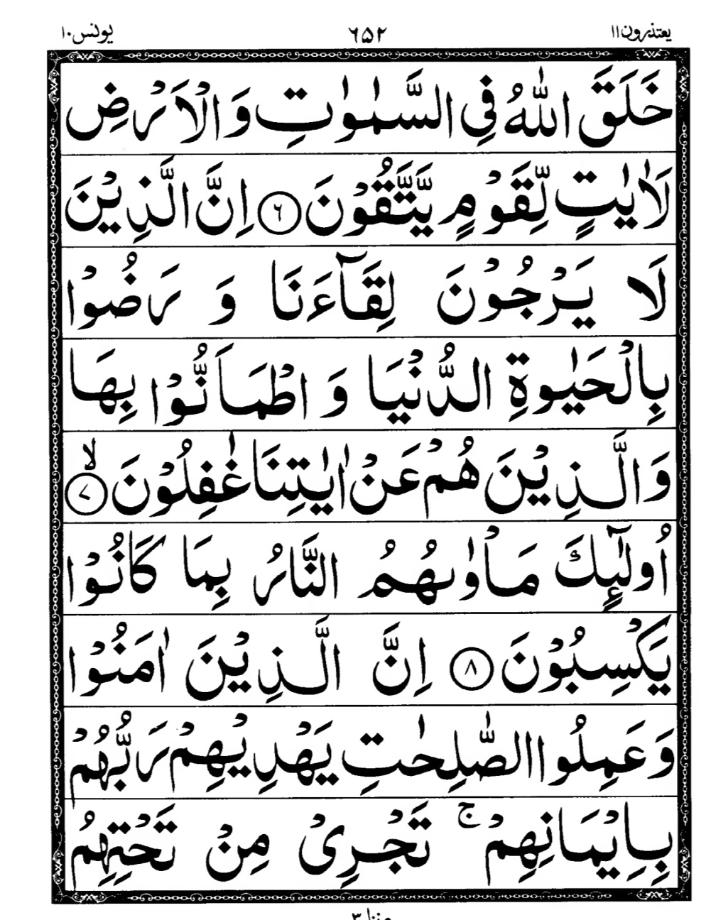 یعتذرون۱۱ ۶۵۲ یونس۱۰
خَلَقَ اللّٰهُ فِي السَّمٰوٰتِ وَ الْاَرْضِ
لَاٰيٰتٍ لِّقَوْمٍ يَّتَّقُوْنَ ۶ اِنَّ الَّذِيْنَ
لَا يَرْجُوْنَ لِقَآءَنَا وَ رَضُوْا
بِالْحَيٰوةِ الدُّنْيَا وَ اطْمَاَنُّوْا بِهَا
وَالَّذِيْنَ هُمْ عَنْ اٰيٰتِنَا غٰفِلُوْنَ ۷ لا
اُولٰٓئِكَ مَاْوٰىهُمُ النَّارُ بِمَا كَانُوْا
يَكْسِبُوْنَ ۸ اِنَّ الَّذِيْنَ اٰمَنُوْا
وَ عَمِلُوا الصّٰلِحٰتِ يَهْدِيْهِمْ رَبُّهُمْ
بِاِيْمَانِهِمْ ج تَجْرِيْ مِنْ تَحْتِهِمُ